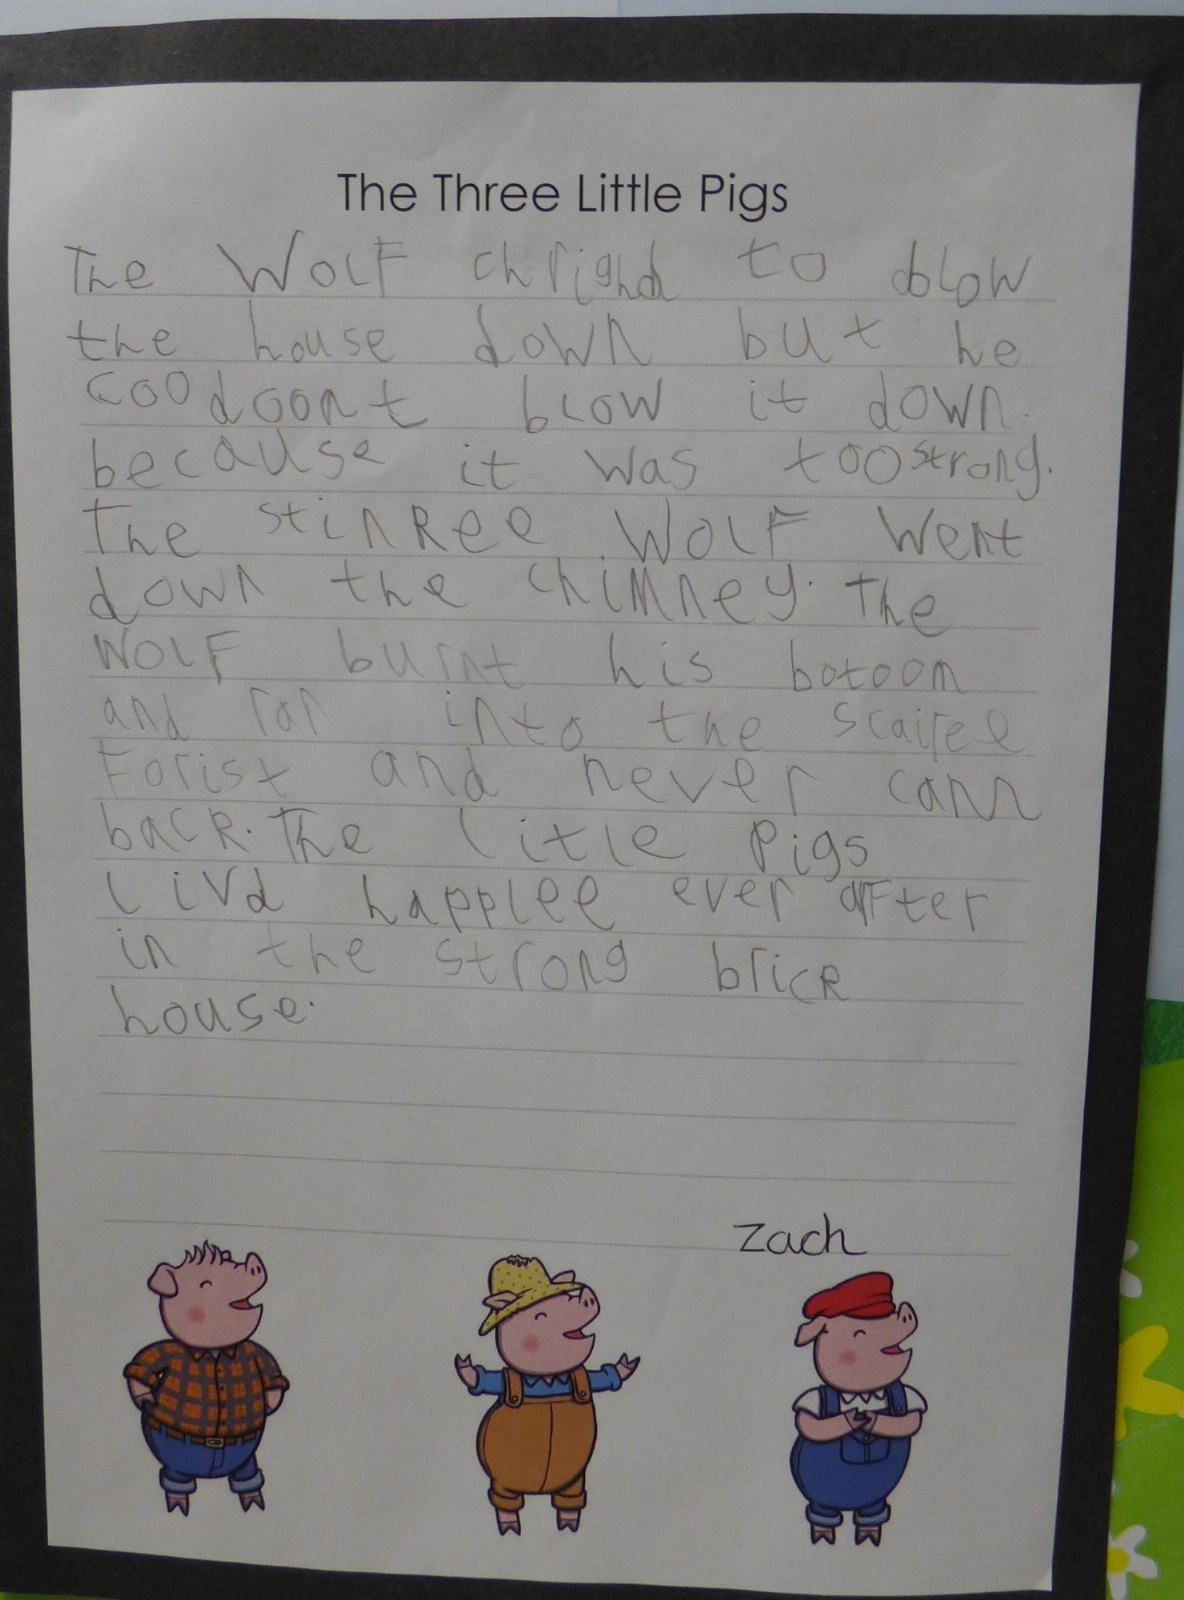 The Three Little Pigs
The WolF chrighd to blow
the house down but he
coodoont blow it down.
because it was toostrong.
The stinkee WolF went
down the chimney. The
WolF burnt his botoom
and ran into the scairee
Forist and never cam
back. The Litle Pigs
Livd happlee ever aFter
in the strong brick
house.
Zach